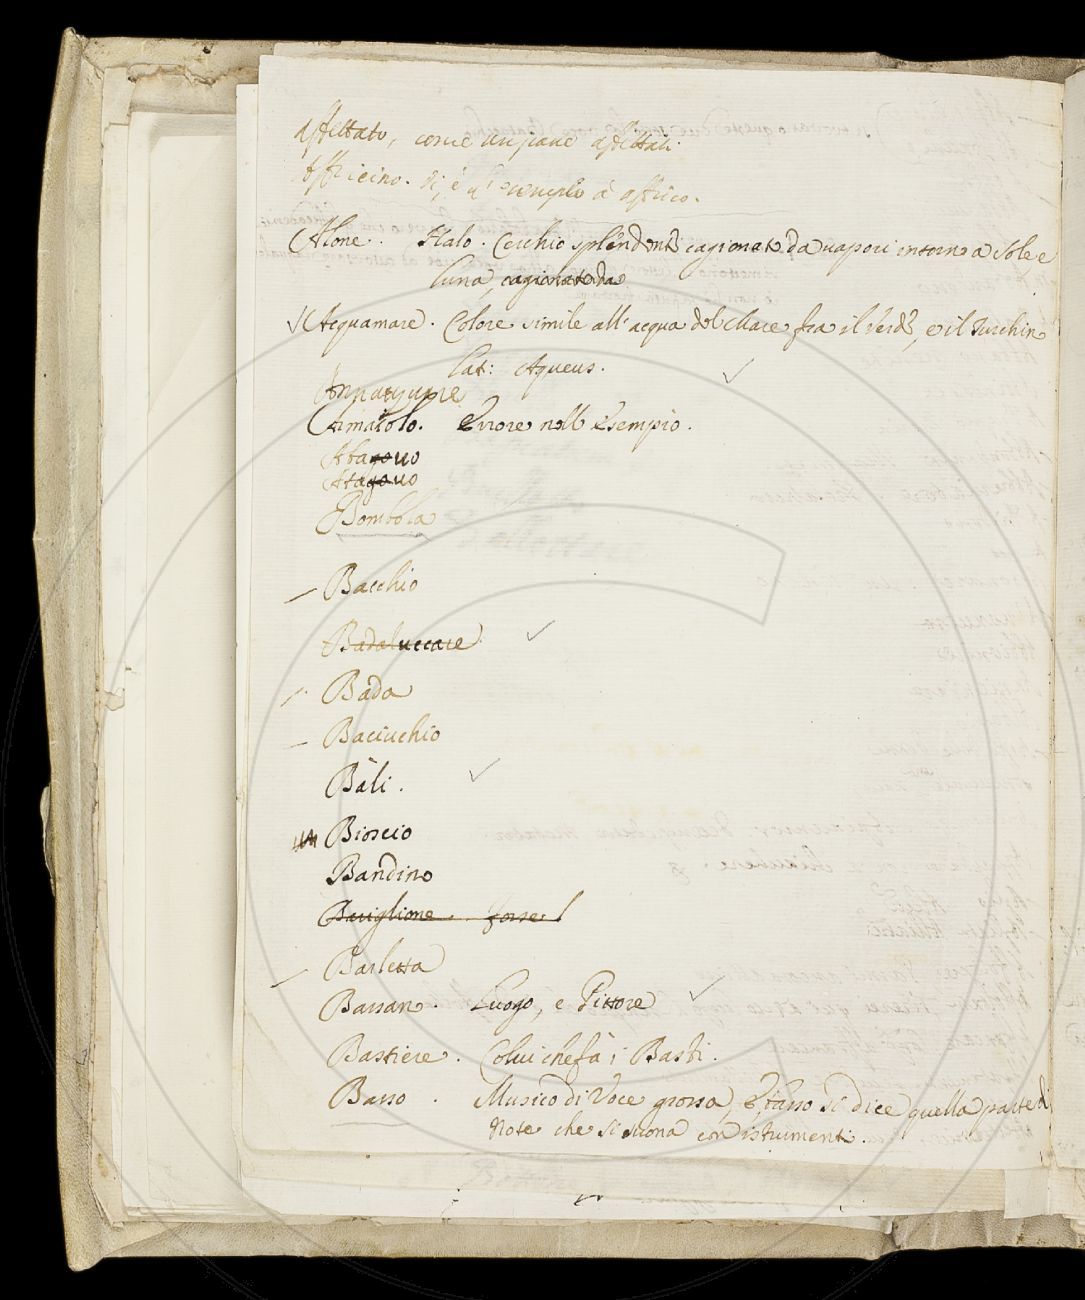 affettato, come un pane affettati
Affricino. Vi è l'esempio à affrico.
Alone. Halo. Cerchio splendente cagionato da vapori intorno a Sole, e
luna, cagionato da
Acquamare. Colore simile all'acqua del Mare fra il verde, e il Turchino
Lat: Aqueus.
Annacquare
Errore nell'Esempio.
Bombola
Bacchio
Badaluccare
Bada
Baciucchio
Bàli.
Bioscio
Bandino
Baviglione. forse
Barletta
Bassano. Luogo, e Pittore
Bastiere. Colui che fà i Basti.
Basso. Musico di Voce grossa, e basso si dice quella parte di
Note che si suona con istrumenti.